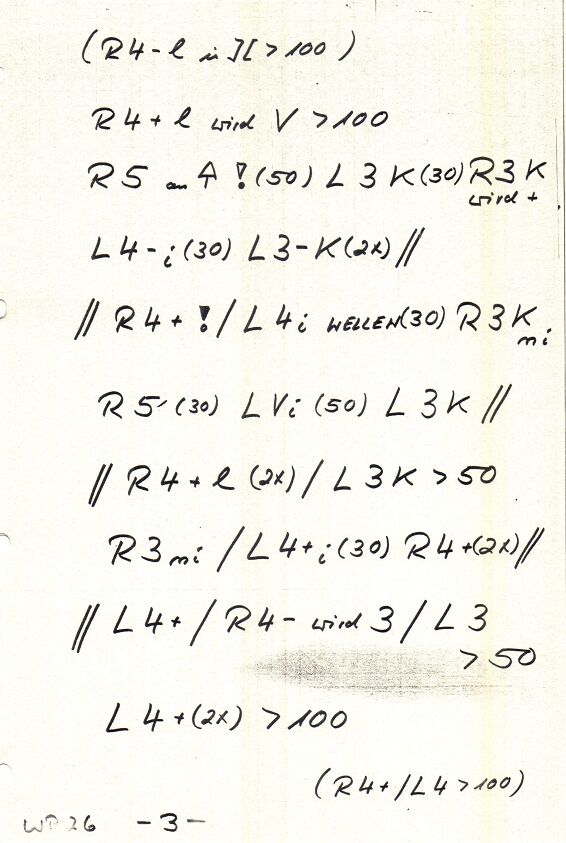 (R4-l in ][ > 100)
R4+l wird V > 100
R5 an ↑ ! (50) L 3 K (30) R3K
wird +
L4-i (30) L3-K (2x) //
// R4+ ! / L4i WELLEN (30) R3K
mi
R5' (30) L Vi (50) L 3K //
// R4+l (2x) / L3K > 50
R3mi / L4+i (30) R4+(2x) //
// L4+ / R4- wird 3 / L3
> 50
L4+(2x) > 100
(R4+ / L4 > 100)
WP 26 -3-